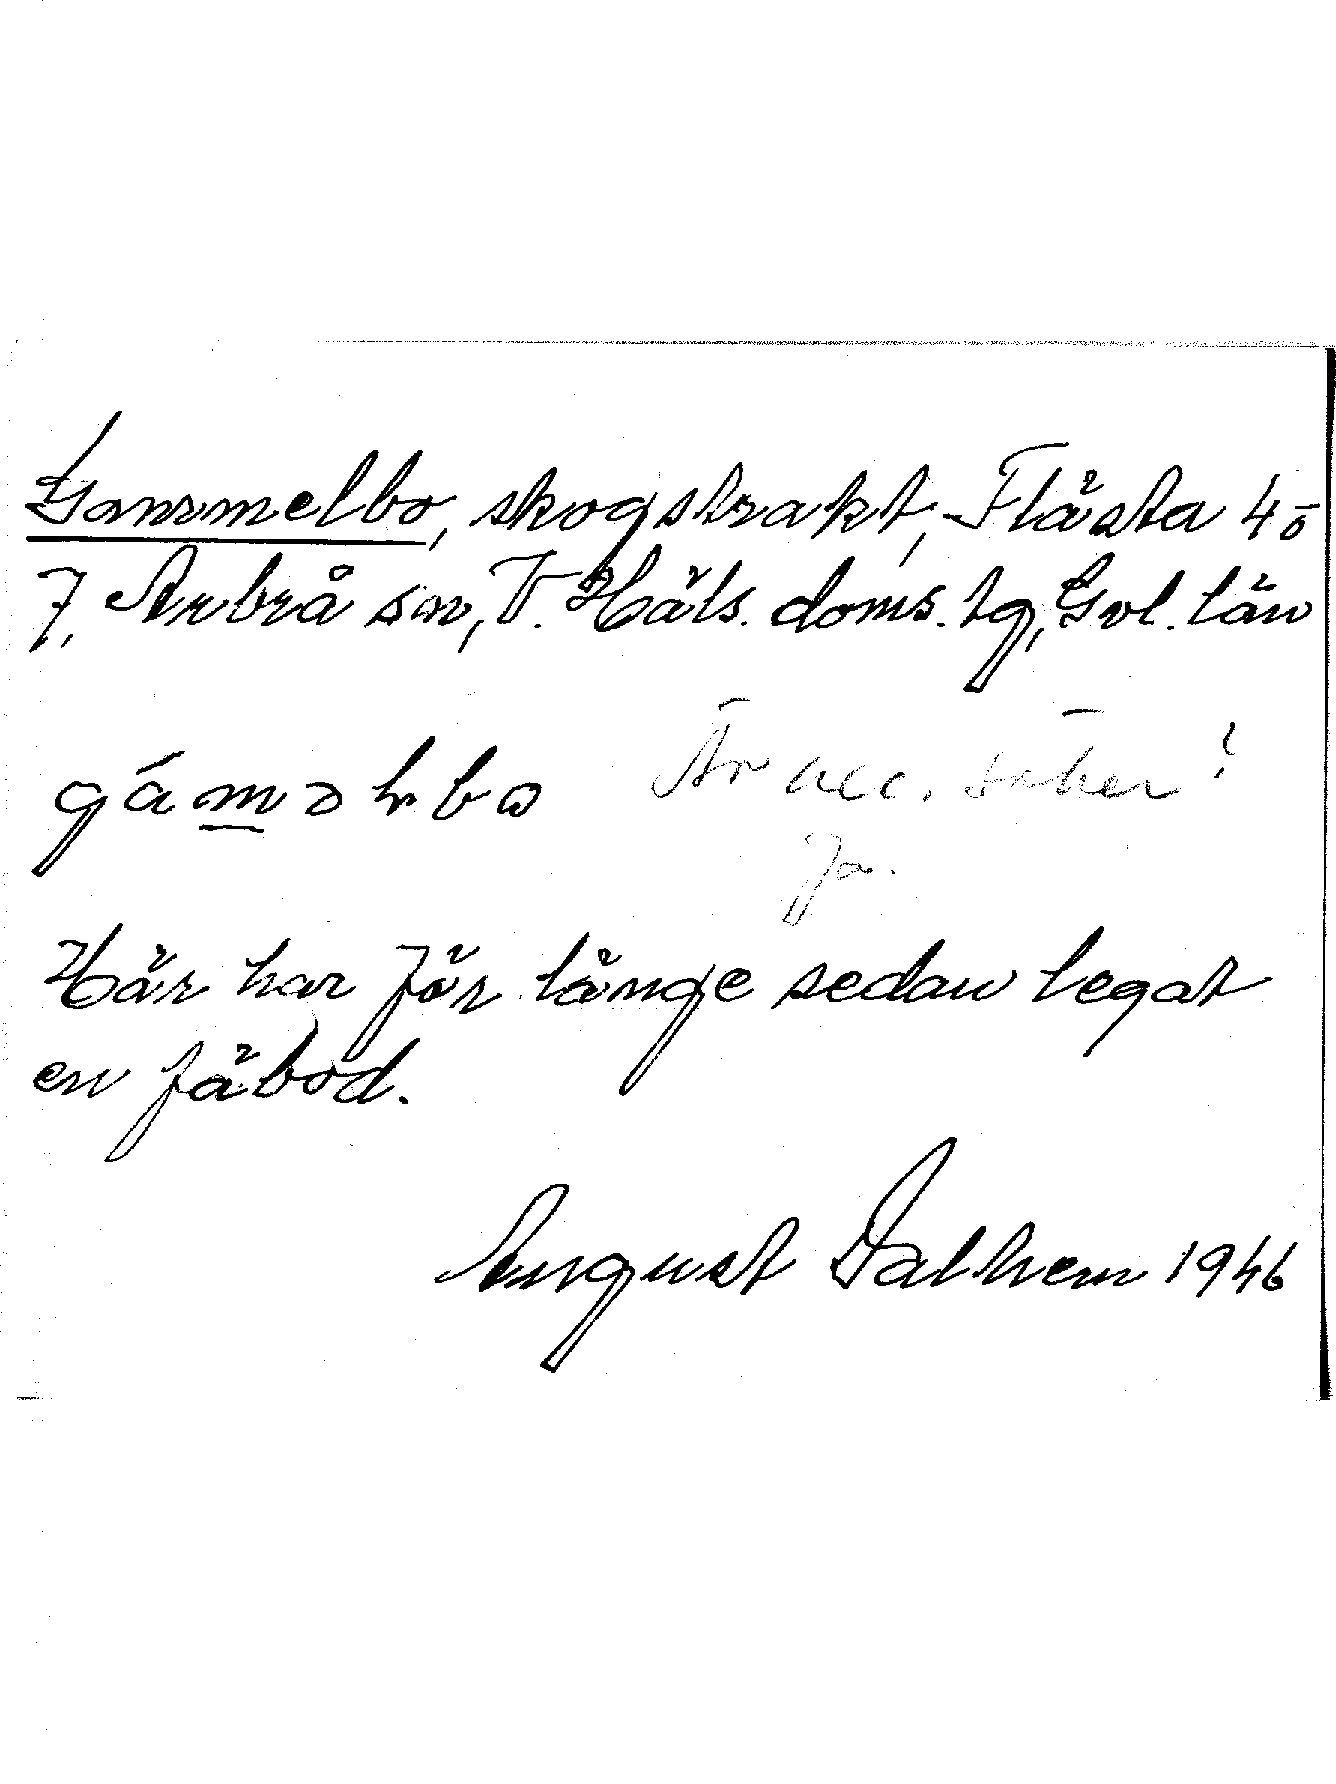 Gammelbo, skogstrakt, Flästa 4 ō
7, Arbrå sn, V. Häls. doms. tg, Gvl. län
gáməꞎbɷ Är acc. säker?
Ja.
Här har för länge sedan legat
en fäbod.
August Dalhem 1946